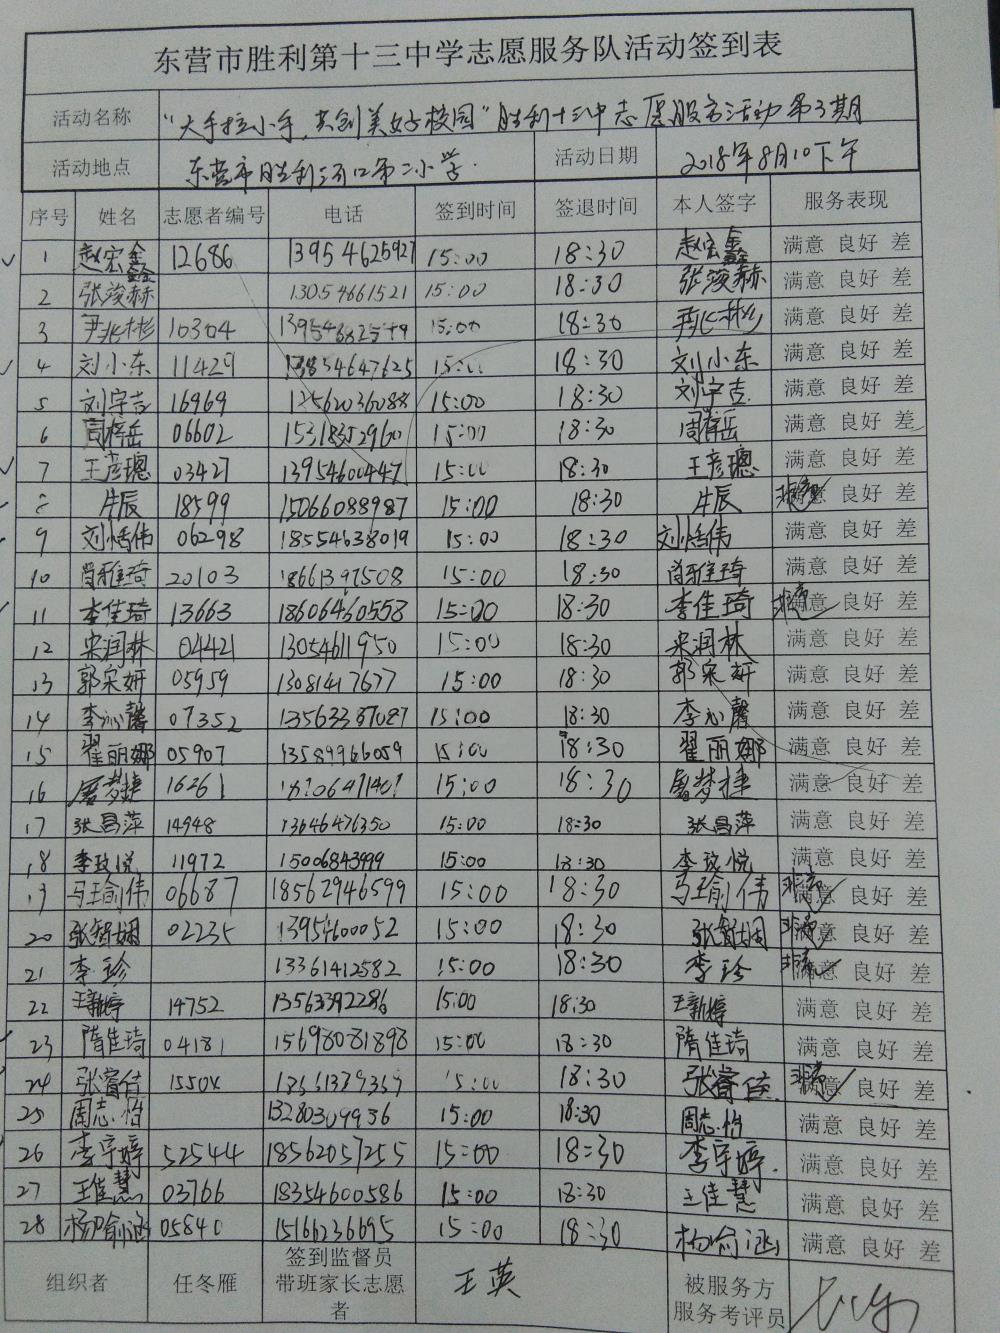 东营市胜利第十三中学志愿服务队活动签到表
活动名称 "大手拉小手,共创美好校园"胜利十三中志愿服务活动第3期
活动地点 东营市胜利河口第二小学 活动日期 2018年8月10下午
序号 姓名 志愿者编号 电话 签到时间 签退时间 本人签字 服务表现
1 赵宏鑫 12686 13954625927 15:00 18:30 赵宏鑫 满意 良好 差
2 张浚赫 13054661521 15:00 18:30 张浚赫 满意 良好 差
3 尹兆彬 10304 15:00 18:30 尹兆彬 满意 良好 差
4 刘小东 11429 13854647625 18:30 刘小东 满意 良好 差
5 刘宇吉 16969 12562036088 15:00 18:30 刘宇吉 满意 良好 差
6 周梓岳 06602 15318352960 15:00 18:30 周梓岳 满意 良好 差
7 王彦璁 03427 13954600447 15:00 18:30 王彦璁 满意 良好 差
8 牛辰 18599 15066088987 15:00 18:30 牛辰 非常满意 良好 差
9 刘恬伟 06298 18554638019 15:00 18:30 刘恬伟 满意 良好 差
10 肖雅琦 20103 18661397508 15:00 18:30 肖雅琦 满意 良好 差
11 李佳琦 13663 18606460558 15:00 18:30 李佳琦 非常满意 良好 差
12 宋润林 04421 13054611950 15:00 18:30 宋润林 满意 良好 差
13 郭宋妍 05959 13081417677 15:00 18:30 郭宋妍 满意 良好 差
14 李沁馨 07352 13563387087 15:00 18:30 李沁馨 满意 良好 差
15 翟丽娜 05907 13589966059 15:00 18:30 翟丽娜 满意 良好 差
16 屠梦捷 16261 15:00 18:30 屠梦捷 满意 良好 差
17 张昌萍 14948 13646476350 15:00 18:30 张昌萍 满意 良好 差
18 李玫悦 11972 15006843999 15:00 18:30 李玫悦 满意 良好 差
19 马瑜伟 06687 18562946599 15:00 18:30 马瑜伟 非常满意 良好 差
20 张智娴 02235 13954600052 15:00 18:30 张智娴 非常满意 良好 差
21 李珍 13361412582 15:00 18:30 李珍 非常满意 良好 差
22 王新婷 14752 13563392286 15:00 18:30 王新婷 满意 良好 差
23 隋佳琦 04181 15698081898 15:00 18:30 隋佳琦 满意 良好 差
24 张睿佳 15504 13561379359 15:00 18:30 张睿佳 非常满意 良好 差
25 周志怡 13280309936 15:00 18:30 周志怡 满意 良好 差
26 李宇婷 52544 18562057255 15:00 18:30 李宇婷 满意 良好 差
27 王佳慧 03766 18354600586 15:00 18:30 王佳慧 满意 良好 差
28 杨喻涵 05840 15166236695 15:00 18:30 杨喻涵 满意 良好 差
组织者 任冬雁 签到监督员 王英 被服务方
带班家长志愿 服务考评员
者